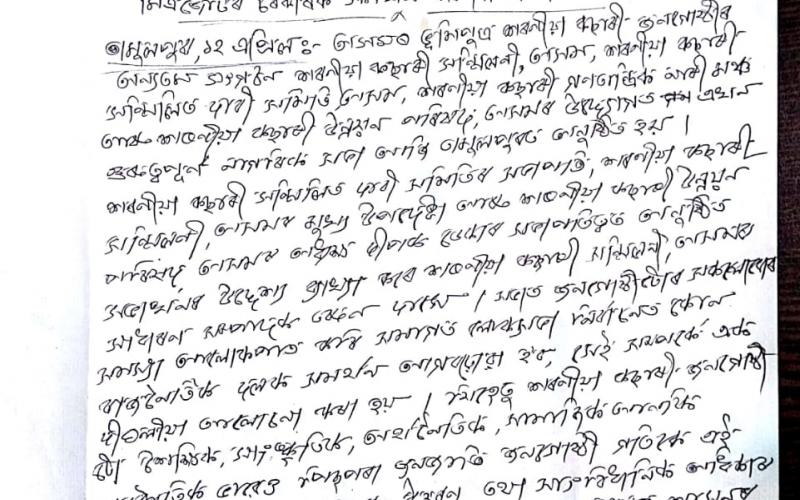 তামুলপুৰ, ১২ এপ্ৰিল:- অসমৰ ভূমিপুত্ৰ শৰণীয়া কছাৰী জনগোষ্ঠীৰ
অন্যতম সংগঠন শৰণীয়া কছাৰী সন্মিলনী, অসম, শৰণীয়া কছাৰী
সন্মিলিত দাবী সমিতি অসম, শৰণীয়া কছাৰী গণতান্ত্ৰিক নাৰী মঞ্চ
আৰু শৰণীয়া কছাৰী উন্নয়ন পৰিষদ, অসমৰ উদ্যোগত এখন
গুৰুত্বপূৰ্ণ নাগৰিক সভা আজি তামুলপুৰত অনুষ্ঠিত হয় ।
শৰণীয়া কছাৰী সন্মিলিত দাবী সমিতিৰ সভাপতি, শৰণীয়া কছাৰী
সন্মিলনী, অসমৰ মুখ্য উপদেষ্টা আৰু শৰণীয়া কছাৰী উন্নয়ন
পৰিষদ, অসমৰ অধ্যক্ষ দীপক ডেকাৰ সভাপতিত্বত অনুষ্ঠিত
সভাখনৰ উদ্দেশ্য ব্যাখ্যা কৰে শৰণীয়া কছাৰী সন্মিলনী, অসমৰ
সাধাৰণ সম্পাদক দাসে । সভাত জনগোষ্ঠীটোৰ
সমস্যা আলোকপাত কৰি সমাগত লোকসভা নিৰ্বাচনত কোন
ৰাজনৈতিক দলক সমৰ্থন আগবঢ়োৱা হব, সেই সম্পৰ্কে এক
দীঘলীয়া আলোচনা কৰা হয় । যিহেতু শৰণীয়া কছাৰী জনগোষ্ঠী
টো শৈক্ষিক, সাংস্কৃতিক, অৰ্থনৈতিক, সামাজিক
জনজাতি জনগোষ্ঠী এই
সাংবিধানিক অধিকাৰ